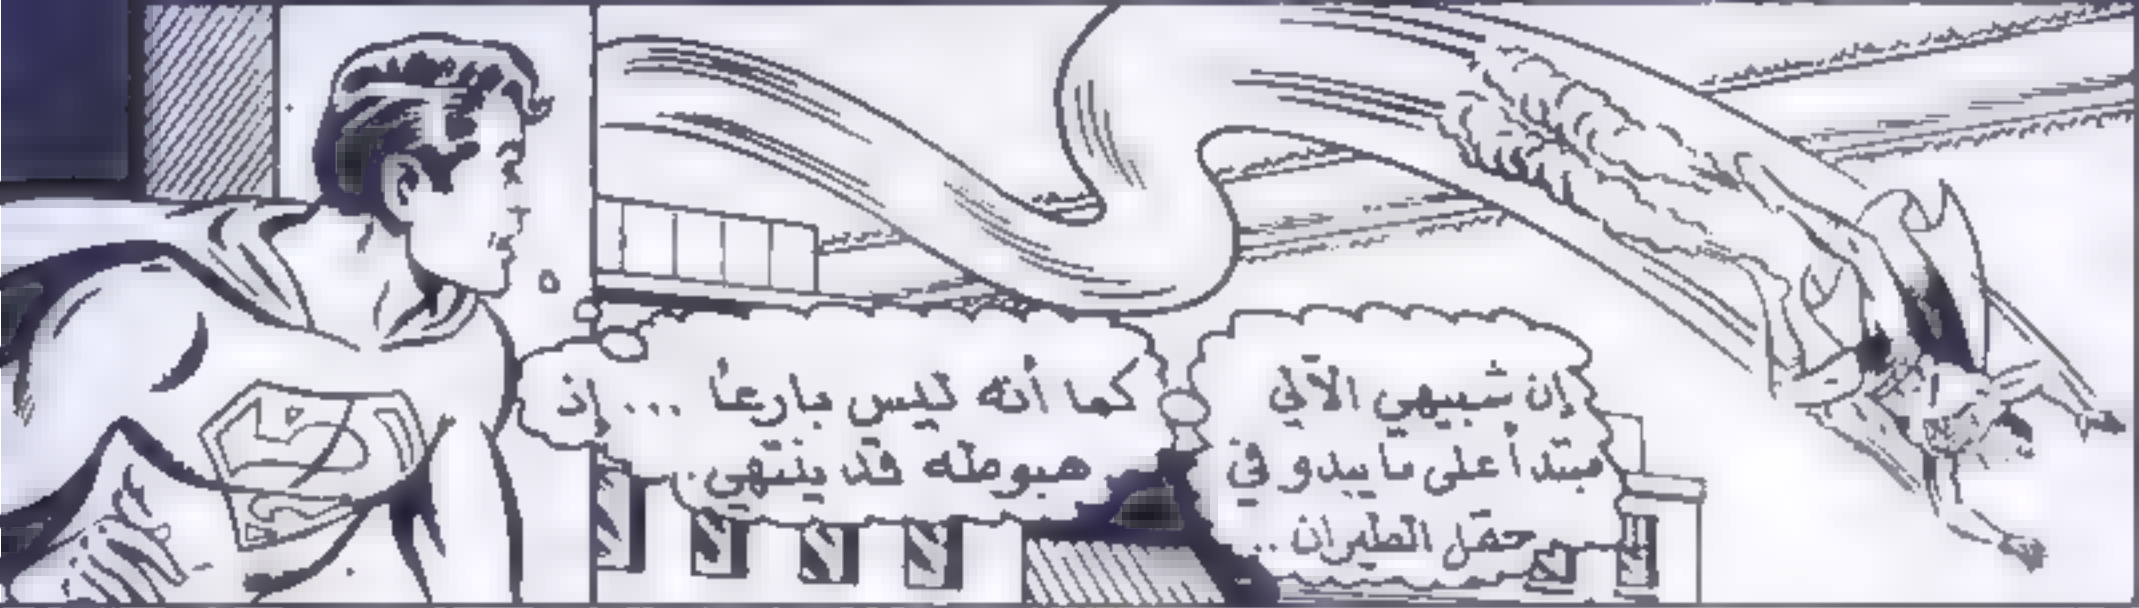 إن شبيهي الآلي
مبتدأ على ما يبدو في
حقل الطيران ..
كما أنه ليس بارعاً ... إن
هبوطه قد ينتهي..